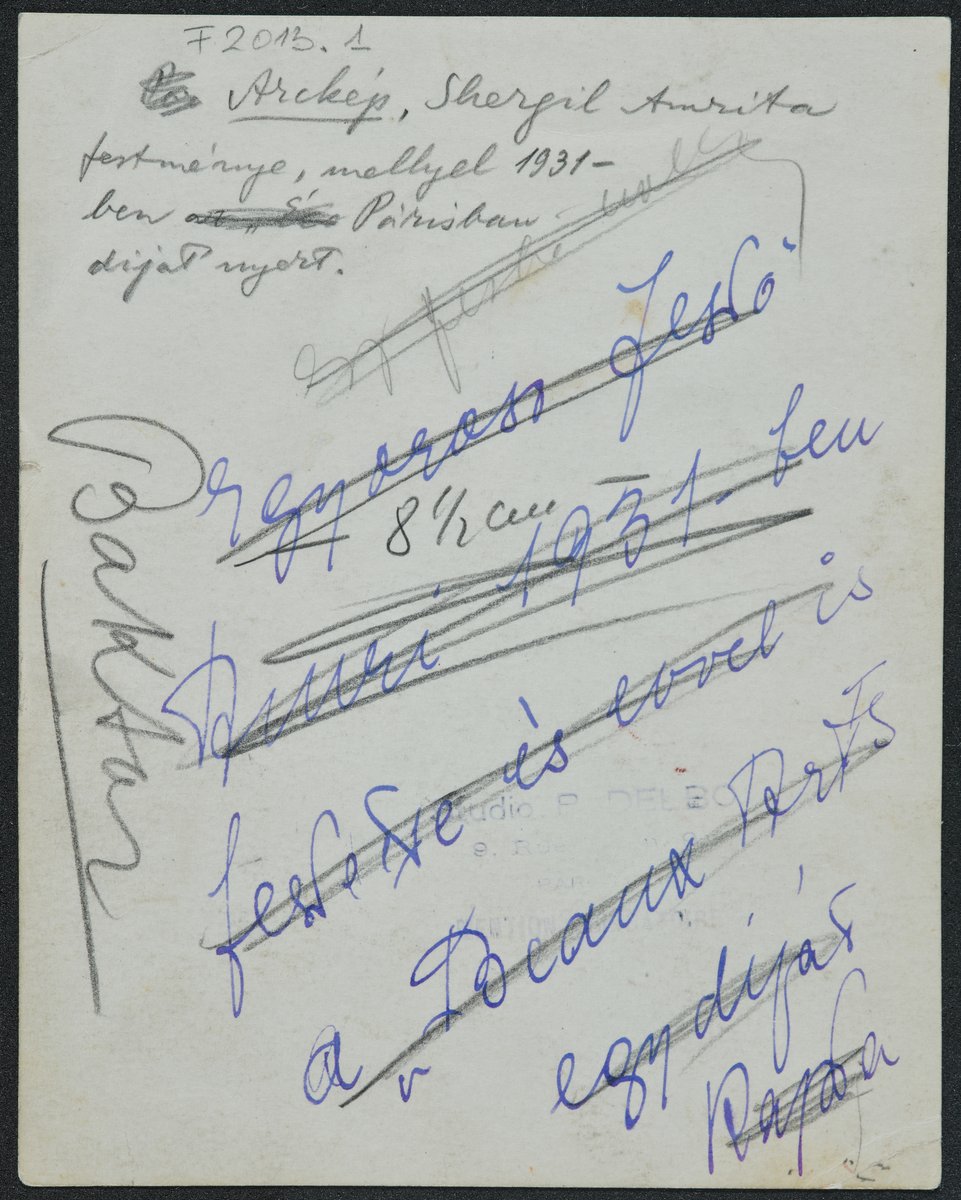 F 2013. 1
Arckép, Shergil Amrita
festménye, mellyel 1931-
ben Párisban
dijat nyert.
egy
Egy orosz festő
8 1/2 cm
Amri 1931-ben
festette és evvel is
a Beaux Arts
egy dijat
Rapta
Baktay
Studio P. DELBO
9. Rue
PAR